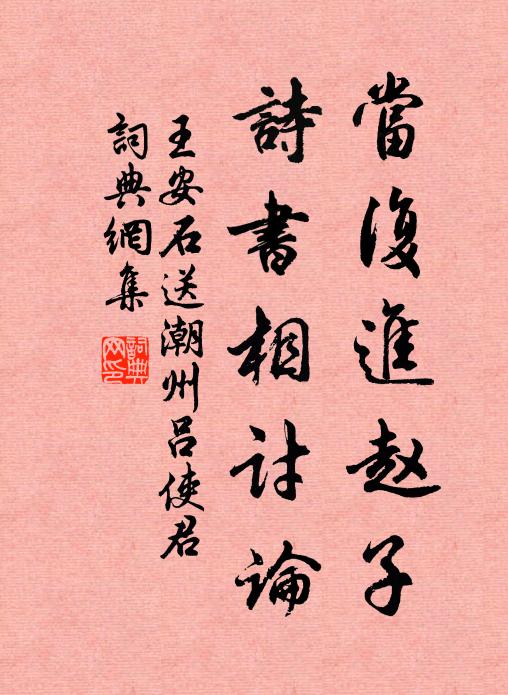 當復進赵子
詩書相討論
王安石送潮州吕使君
詞典網集
詞典網印